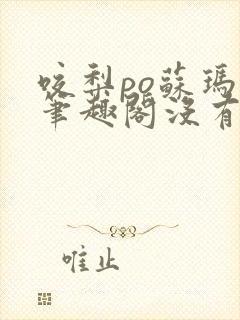 咬梨po蘇瑪
筆趣閣沒有
唯止